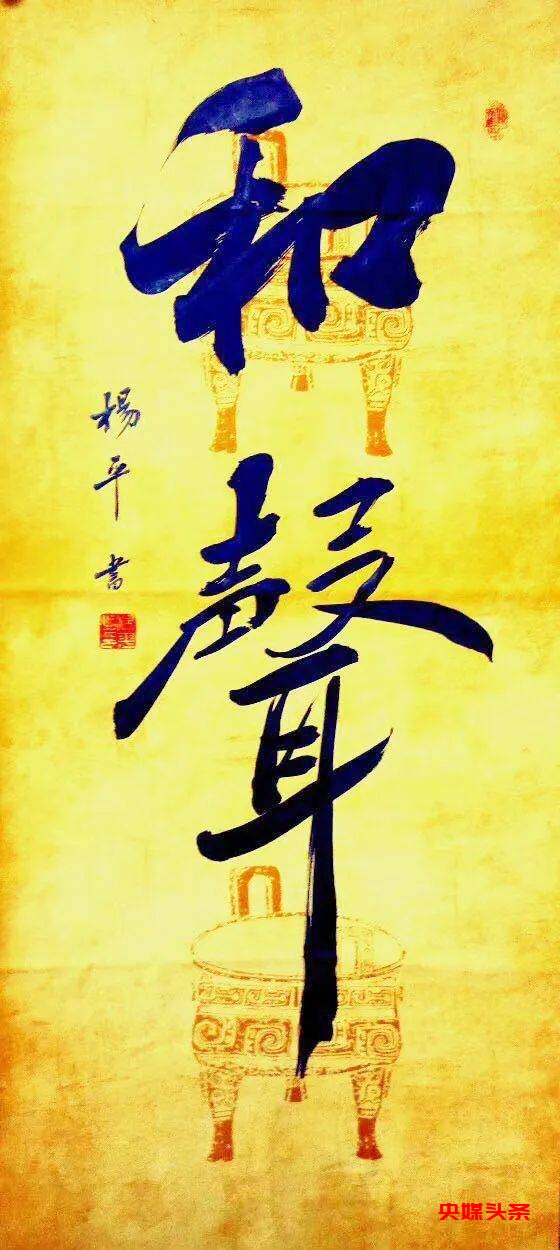 和
聲
楊平書
央媒头条